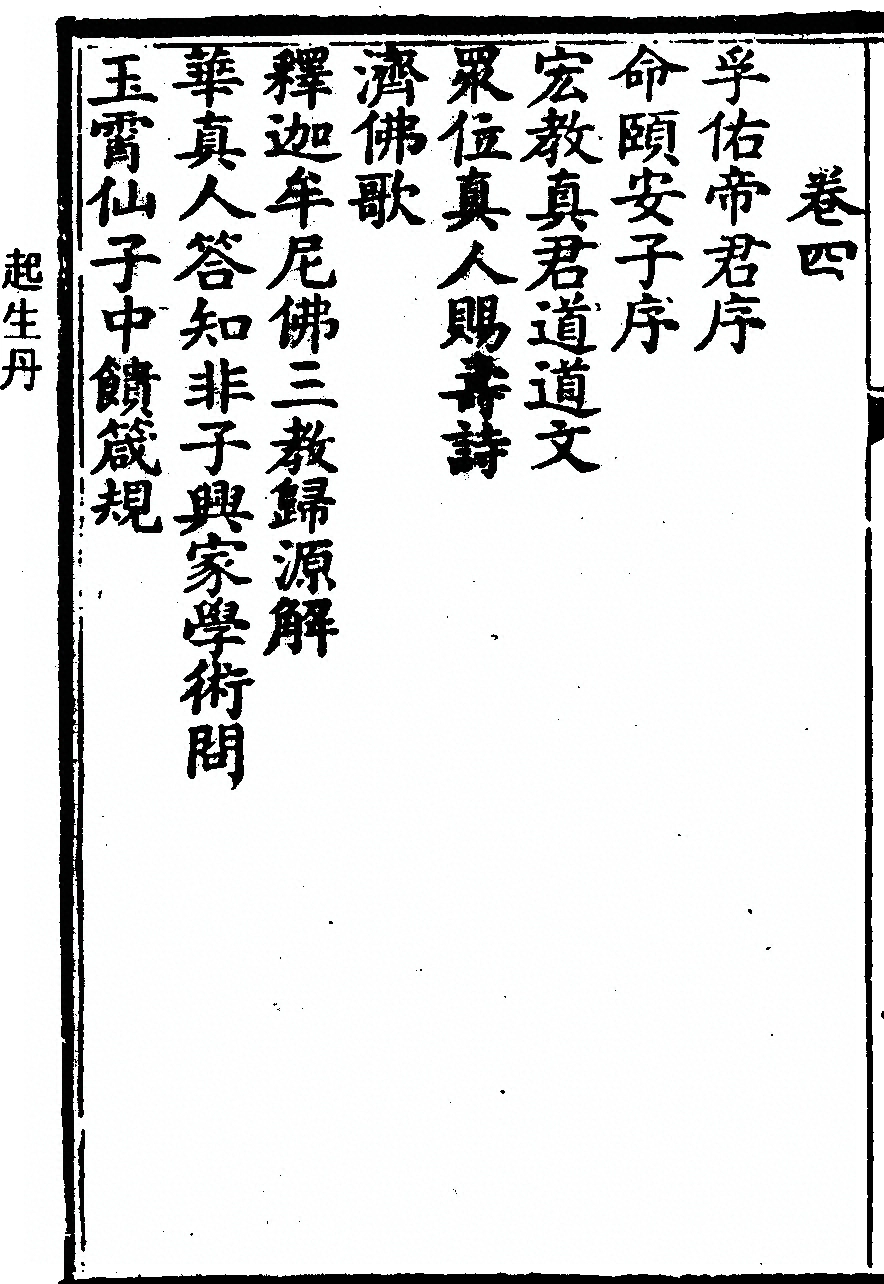 卷四
孚佑帝君序
命頤安子序
宏教真君道道文
眾位真人賜壽詩
濟佛歌
釋迦牟尼佛三教歸源解
華真人答知非子興家學術問
玉霄仙子中饋箴規
起生丹